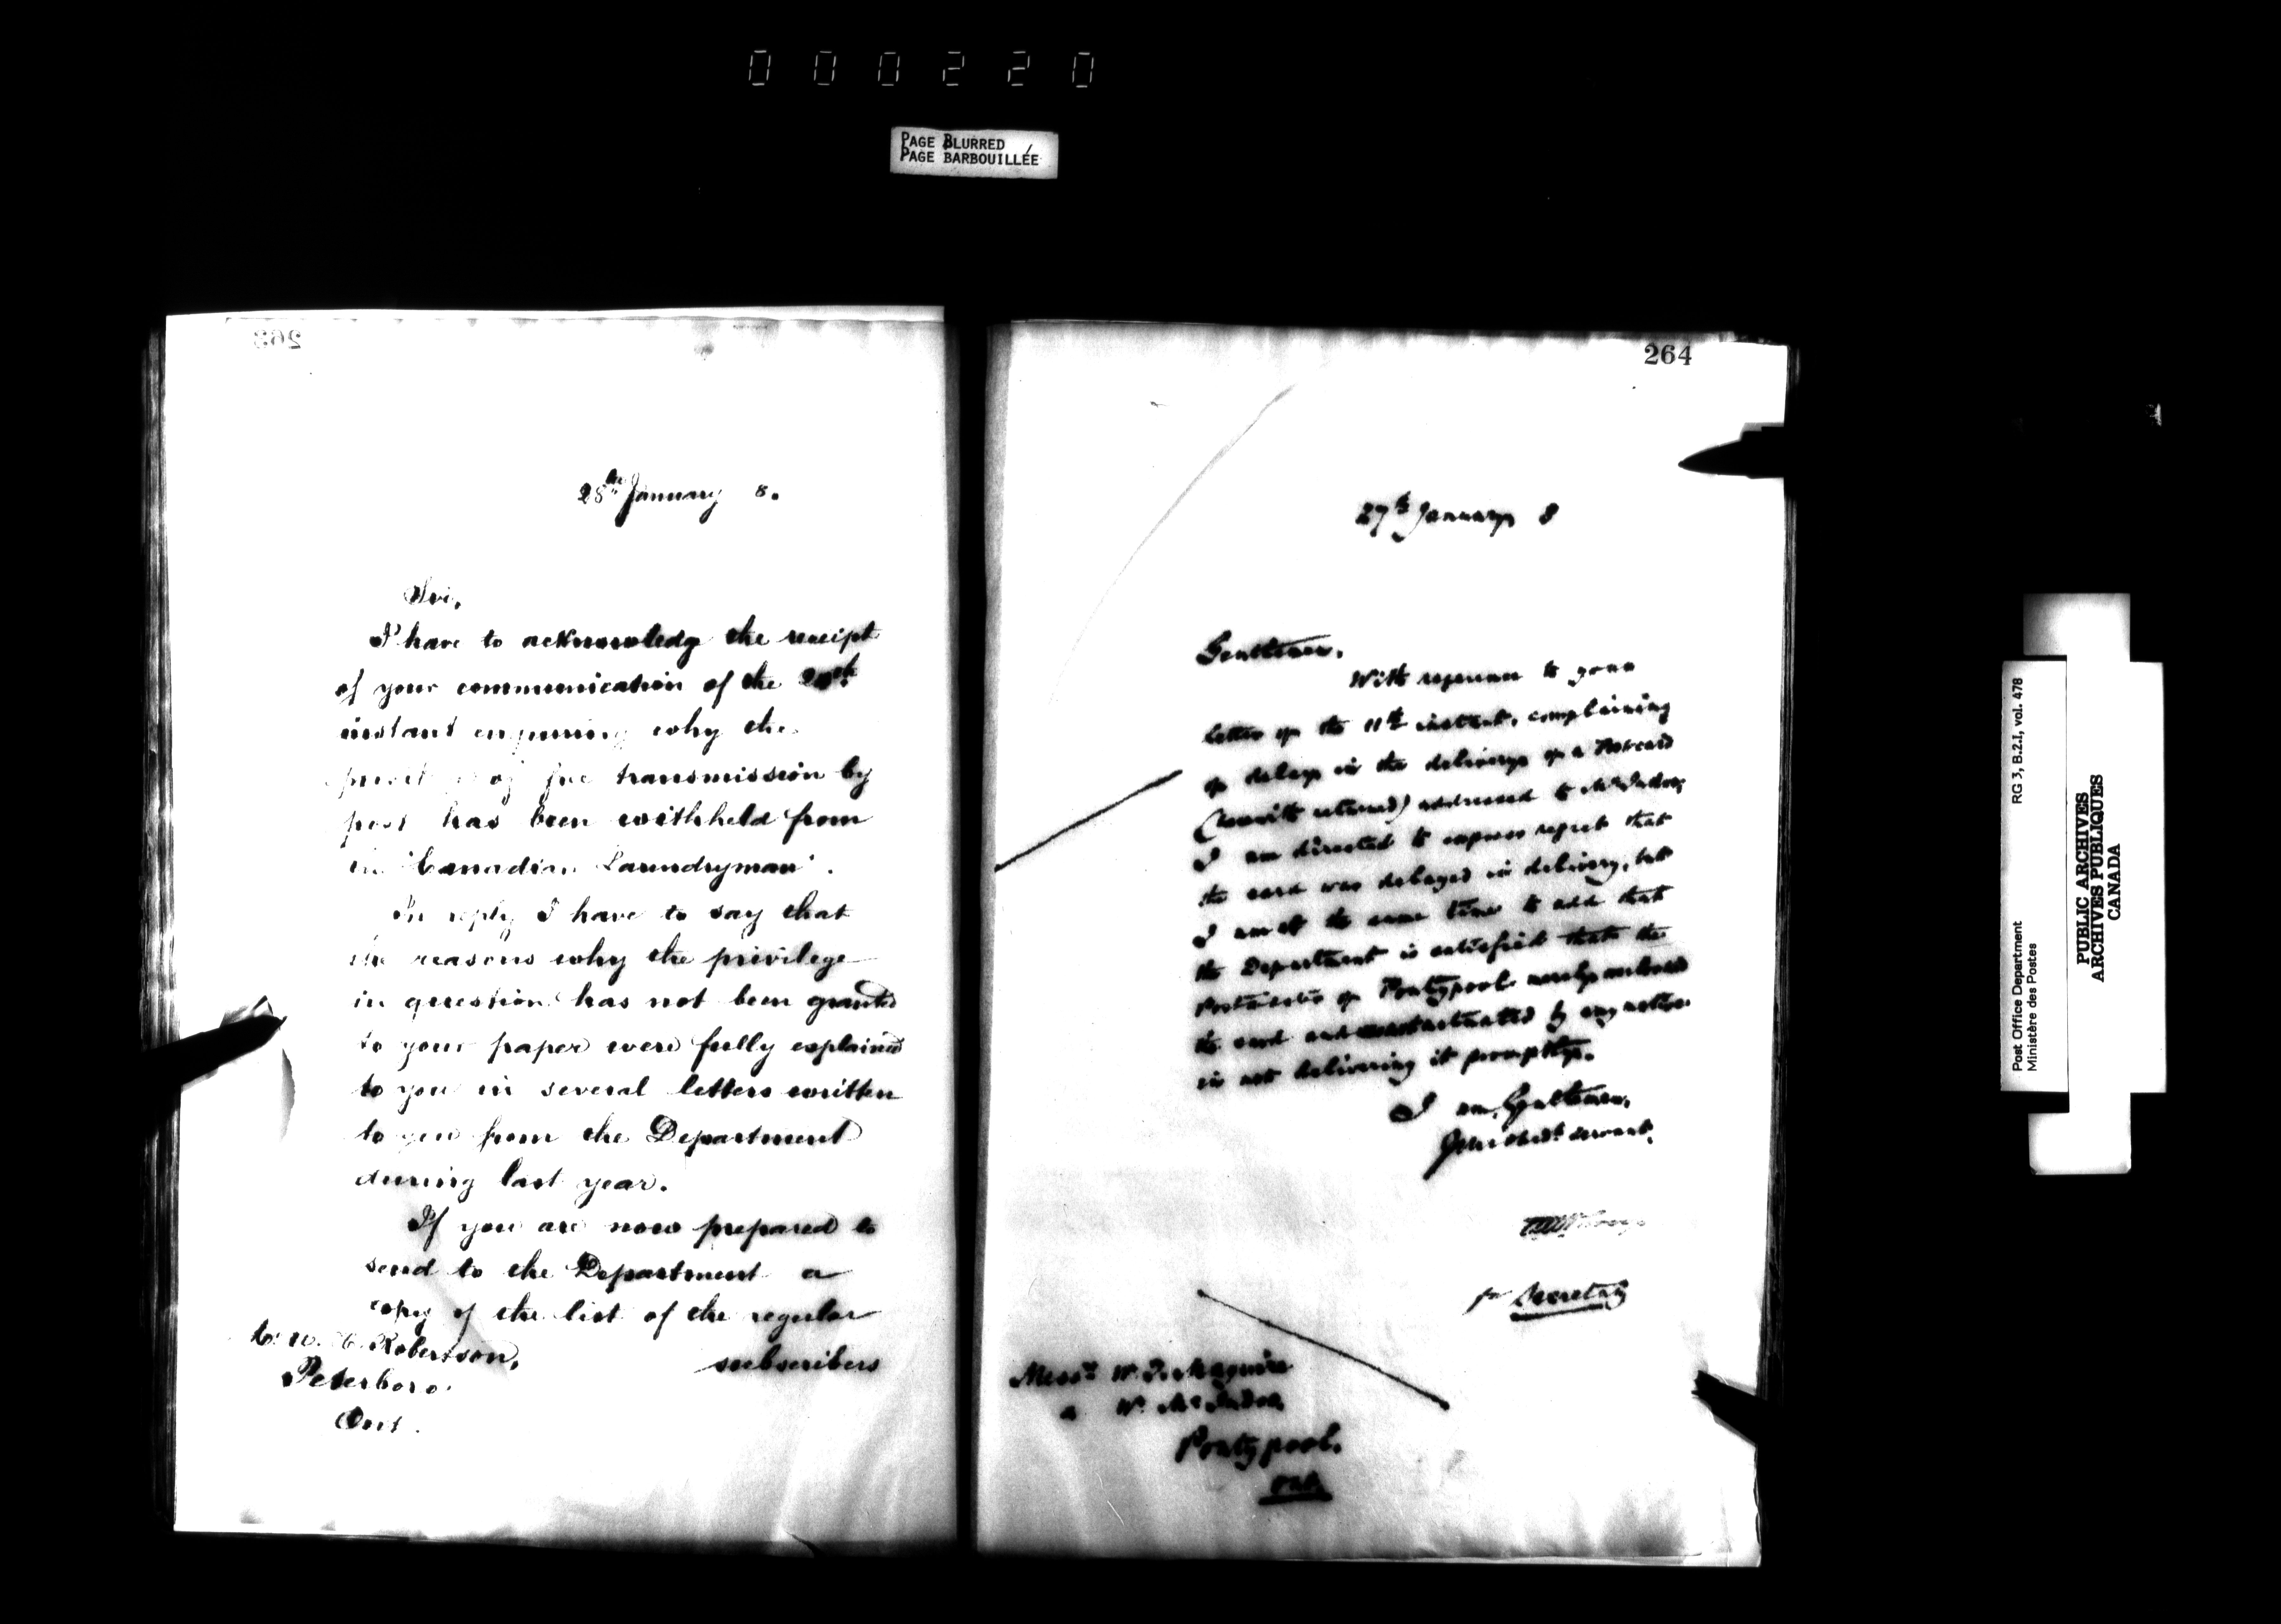 000220
PAGE BLURRED
PAGE BARBOUILLÉE
263
28th January 8.
Sir,
I have to acknowledge the receipt
of your communication of the
instant enquiring why the
of free transmission by
post has been withheld from
the "Canadian Laundryman".
In reply I have to say that
the reasons why the privilege
in question has not been granted
to your paper were fully explained
to you in several letters written
to you from the Department
during last year.
If you are now prepared to
send to the Department a
copy of the list of the regular
subscribers
Robertson,
Peterboro.
Ont.
264
27th January 8
Gentlemen,
With reference to your
letter of the 11th instant, complaining
of delay in the delivery of a Postcard
(herewith returned) addressed to
I am directed to express regret that
the card was delayed in delivery, but
I am at the same time to add that
the Department is satisfied that the
Postmaster of Pontypool merely
the card and actuated by any
in not delivering it promptly.
I am, Gentlemen,
Your obedt. servant,
for Secretary
Messrs W. J. Maguire
& W. McIndoo,
Pontypool,
Ont.
Post Office Department
Ministère des Postes
RG 3, B.2.I, vol. 478
PUBLIC ARCHIVES
ARCHIVES PUBLIQUES
CANADA